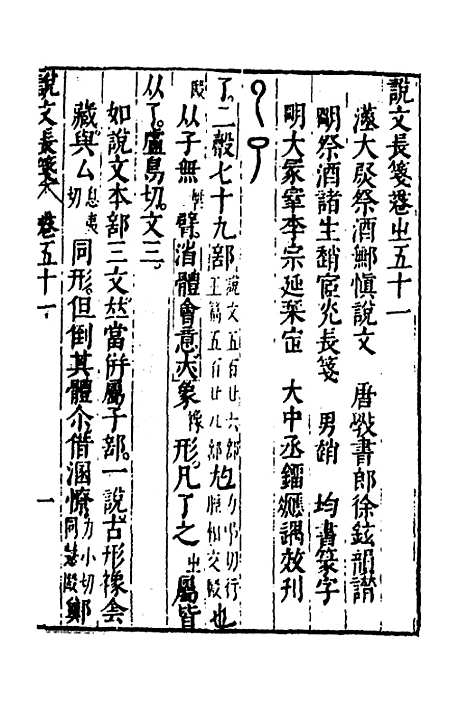 說文長箋卷㞢五十一
漢大𡰥祭酒鄦愼說文　唐挍書郎徐鉉韻譜
明祭酒諸生趙宧光長箋　男鈞　均書篆字
明大冢宰李宗延琹定　大中丞鎦㢘
了二㱿七十九部說文五百廿六部王篇五百廿八部尥力弔切行脛相交也
从子無臂消體會意夫象形凡了之屬皆
从了盧鳥切文三
如說文本部三文𠀤當併屬子部一說古形㒸会
藏與厶息夷切同形但倒其體尒借溷憭力小切同慧鄭
說文長箋　卷五十一　一